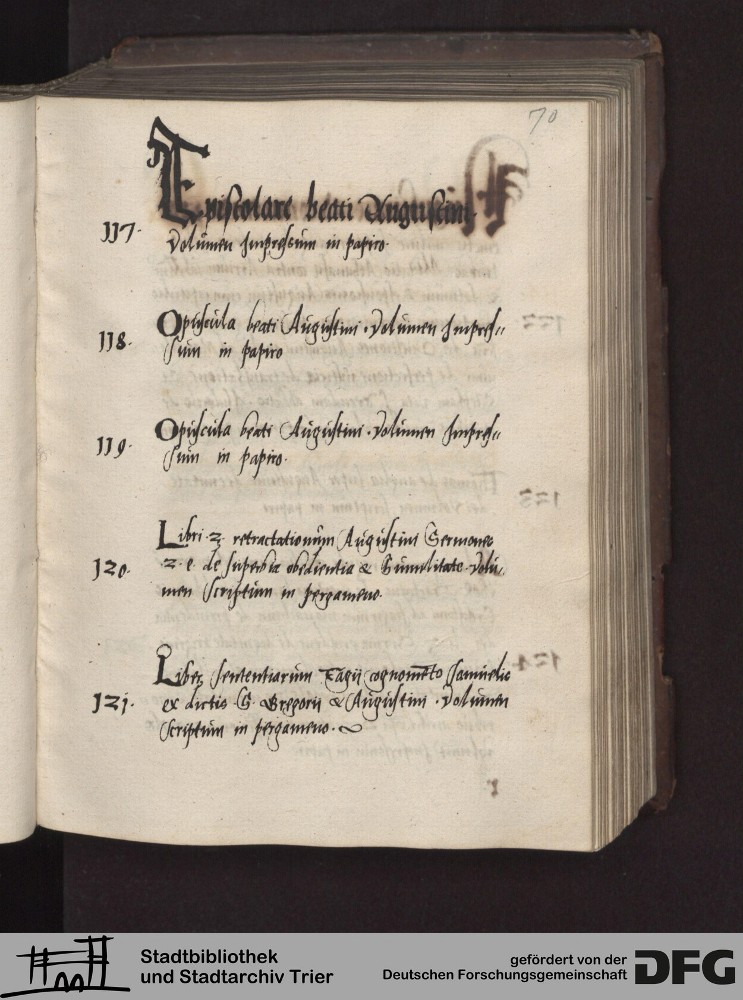 70
Epistolare beati Augustini
117. Volumen Impressum in papiro.
Opuscula beati Augustini. Volumen Impres-
118. sum in papiro
Opuscula beati Augustini. Volumen Impres-
119. sum in papiro.
Libri .2. retractationum Augustini Sermones
120. .2. e. de superbia obedientia & humilitate. Volu-
men scriptum in pergameno.
Liber sententiarum Tagii cognomēto Samuelis
121. ex dictis S. Gregorii & Augustini. Volumen
scriptum in pergameno.
Stadtbibliothek
und Stadtarchiv Trier
gefördert von der
Deutschen Forschungsgemeinschaft
DFG